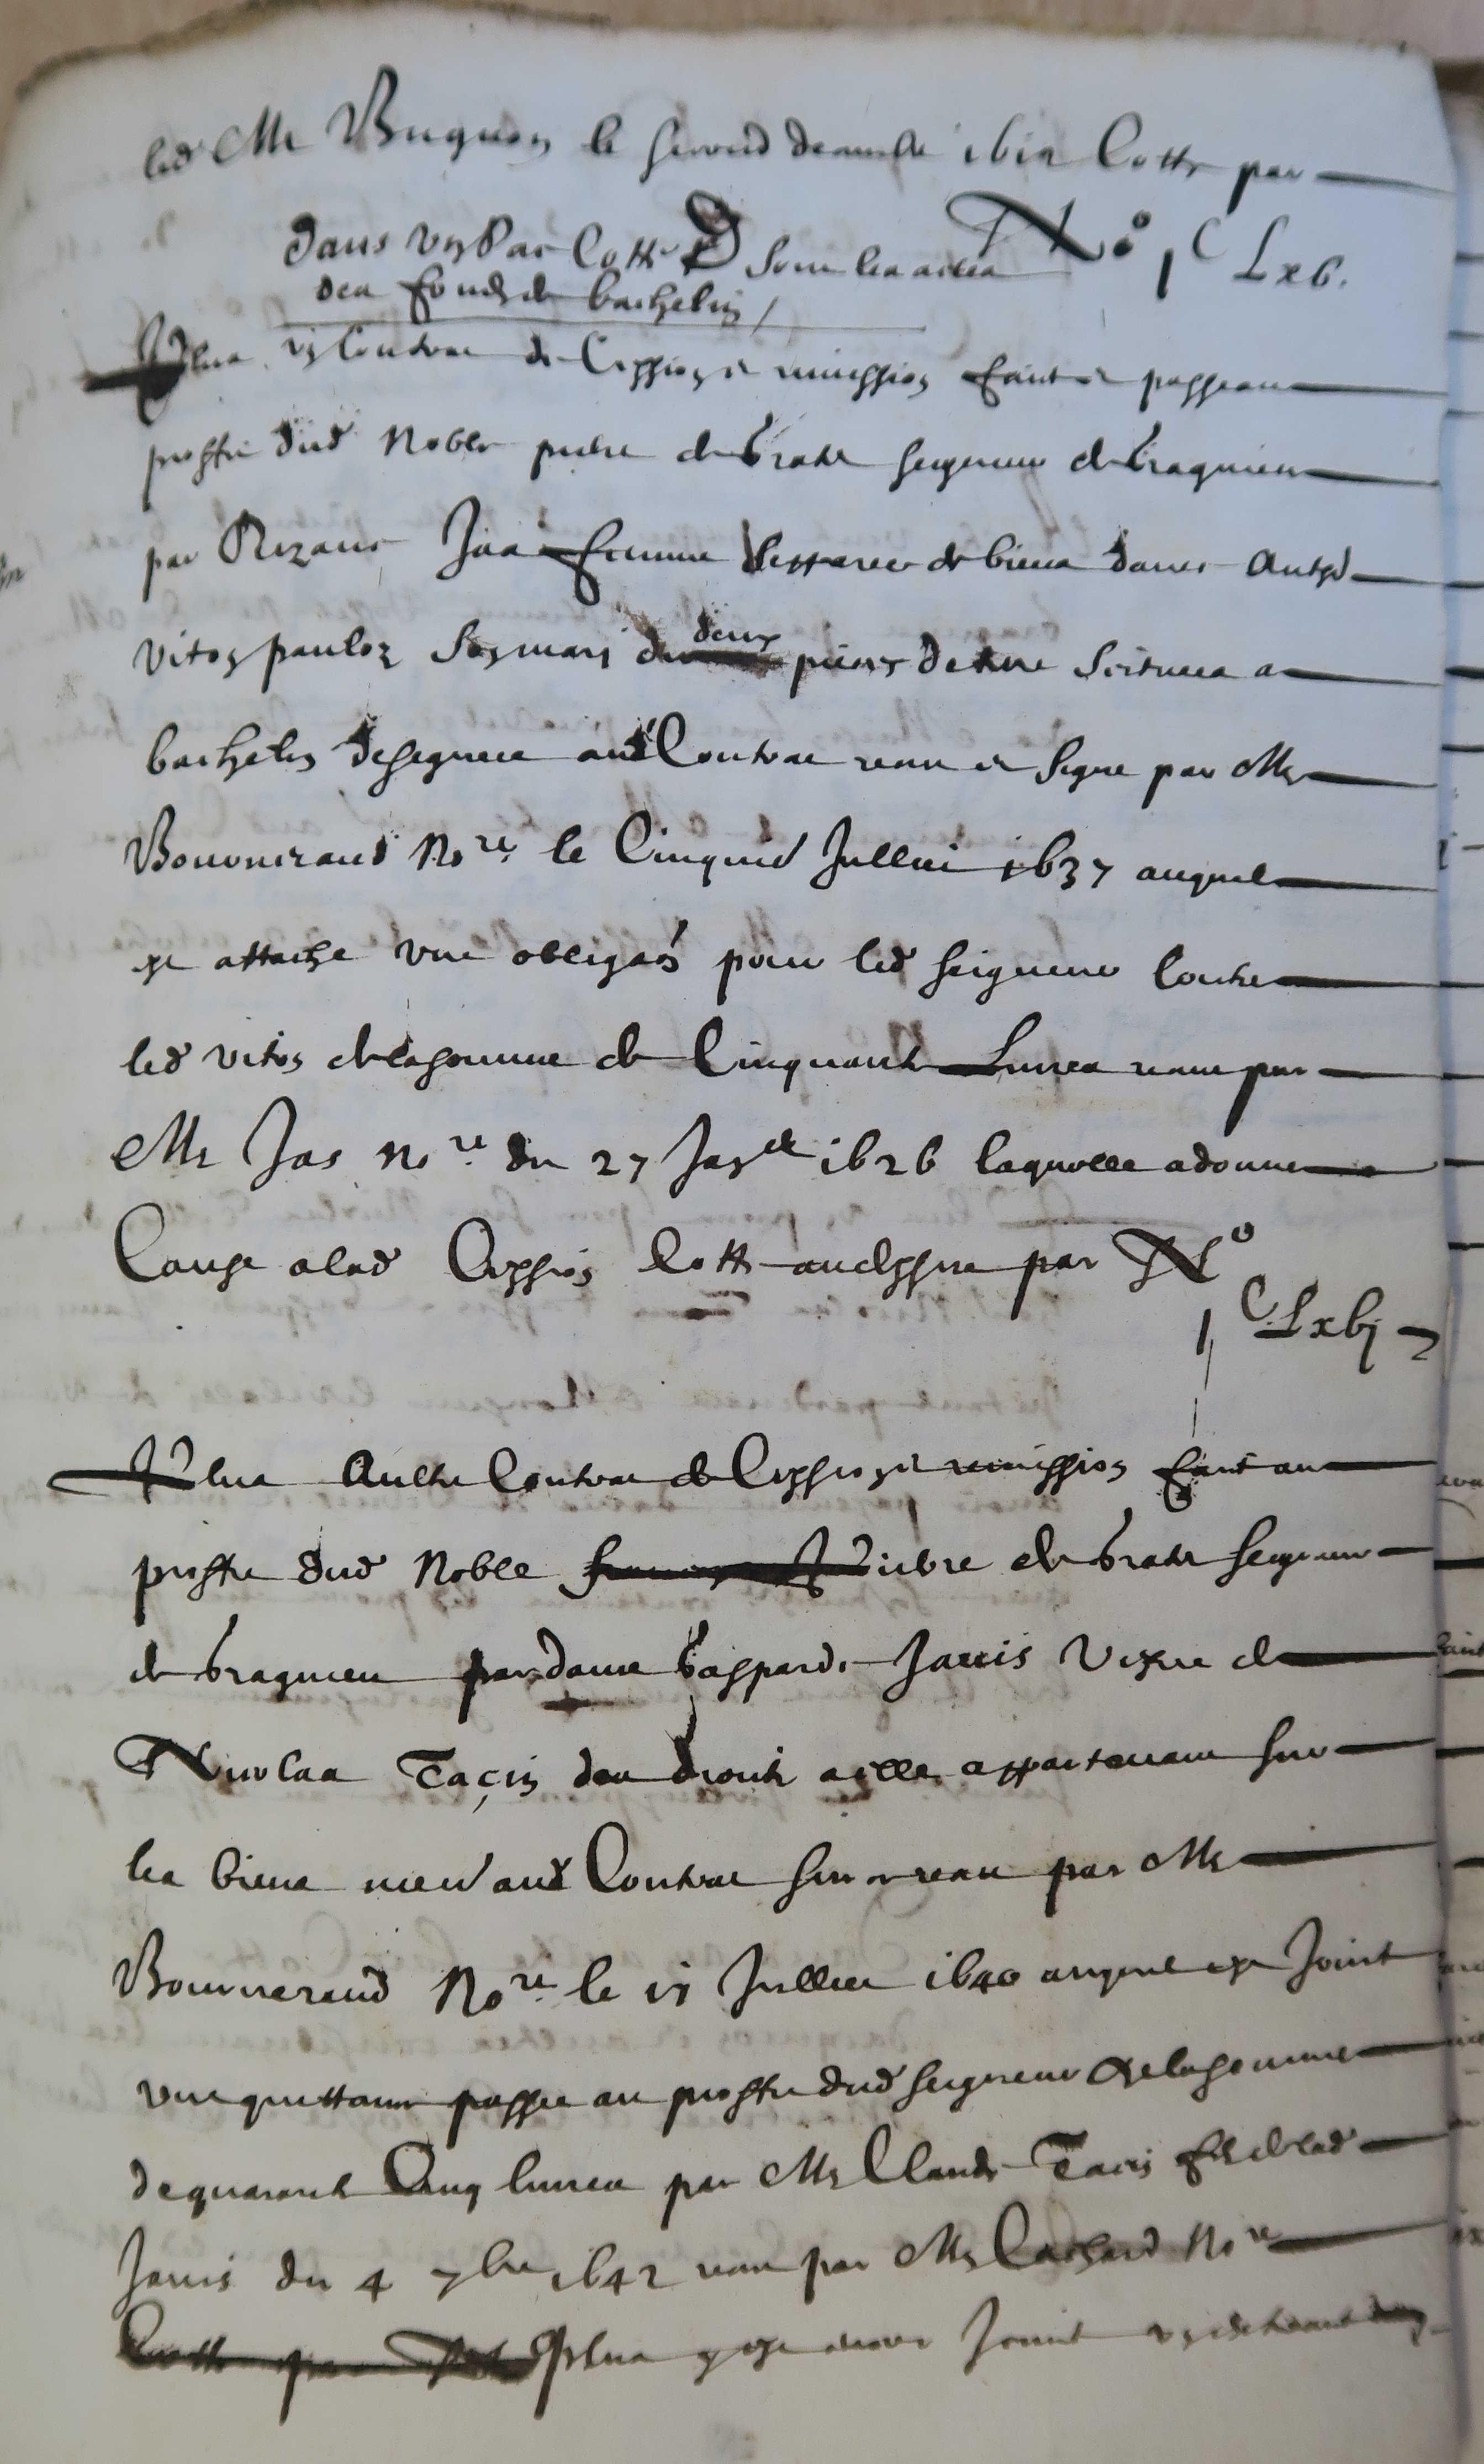 led Me Buguon le second decembre 1612 Cotte par
dans un Sac Cotte D sont les actes N.º 1 C Lxv.
des fonds de bachelin /
Plus un Contrac de Cession et remission faict et passe au
proffit dud Noble pierre de brade seigneur de braquieu
par Rozane Jas femme separee de biens davec Anthoine
Viton pauloz son mary de deux pieces de terre scituees a
bachelin designees aud Contrac receu et signe par Me
Bouvieraud No.re le Cinquie Jullet 1637 auquel
est attache une obliga.on pour led seigneur Contre
led viton de la somme de Cinquante Livres receue par
Me Jas no.re du 27 Jan 1626 laquelle a donne
Cause a lad Cession Cotte au dessus par N.º
1 C Lxvj
Plus Aultre Contrac de Cession et remission faict au
proffit dud Noble pierre de brade seigneur
de braquieu par dame Gasparde Jauis vefve de
Nicolas Tacin des droits a elle appartenant sur
les biens men aud Contrac sur ce receu par Me
Bouvieraud No.re le 15 Jullet 1640 auquel est Joint
une quittance passee au proffit dud seigneur de la somme
de quarante Cinq livres par Me Claude Tacin fils de lad
Jauis du 4 7bre 1642 receu par Me Cachard No.re
Cotte par Plus y est encore Joinct un